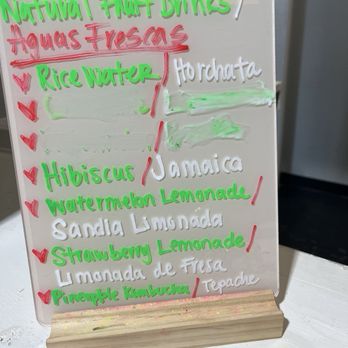 Natural Fruit Drinks/
Aguas Frescas
Rice Water / Horchata
Hibiscus / Jamaica
Watermelon Lemonade /
Sandia Limonada
Strawberry Lemonade /
Limonada de Fresa
Pineapple Kombucha / Tepache